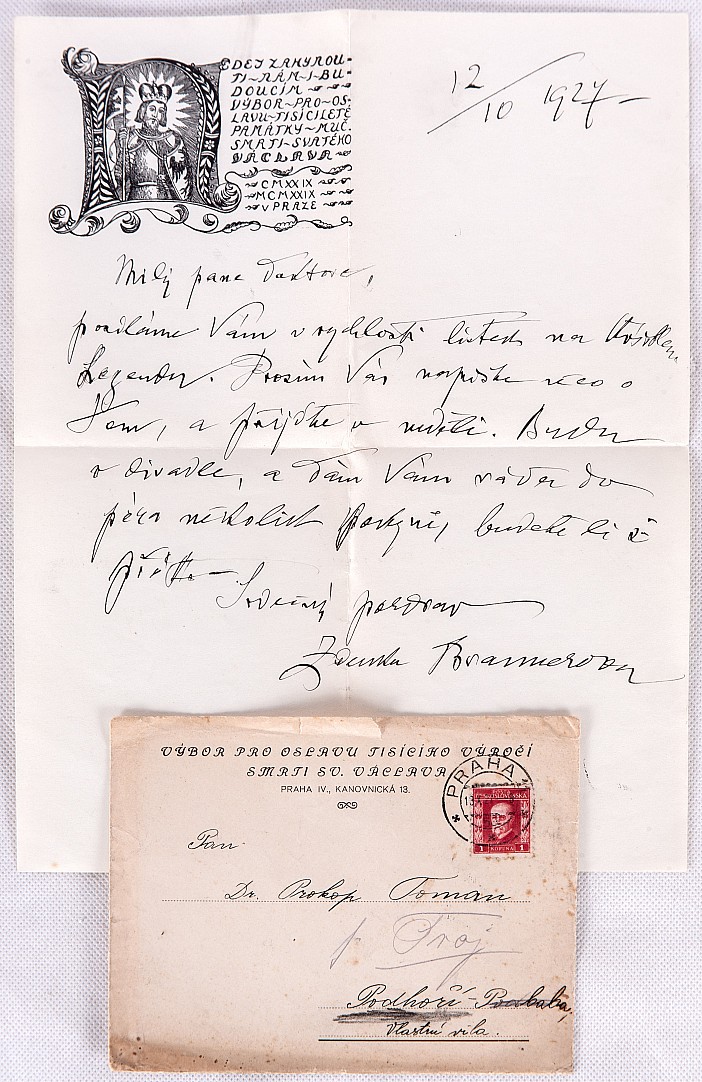 NEDEJ ZAHYNOU-
TI~NÁM~I~BU-
DOUCÍM
VÝBOR~PRO~OS-
LAVU~TISÍCILETÉ
PAMÁTKY~MUČ.
SMRTI~SVATÉHO
VÁCLAVA
CMXXIX
MCMXXIX
V PRAZE
12/10 1927
Milý pane Doktore,
posíláme Vám v rychlosti lístek na
Legendu. Prosím Vás napište něco o
tom, a přijďte v neděli. Budu
v divadle, a dám Vám ráda do
péra několik pokynů, budete li
Srdečný pozdrav
Zdenka Braunerova
VÝBOR PRO OSLAVU TISÍCÍHO VÝROČÍ
SMRTI SV. VÁCLAVA
PRAHA IV., KANOVNICKÁ 13.
PRAHA
ČESKOSLOVENSKÁ
1 KORUNA 1
Pan
Dr. Prokop Toman
p. Troj
Podhoří-
Vlastní vila.